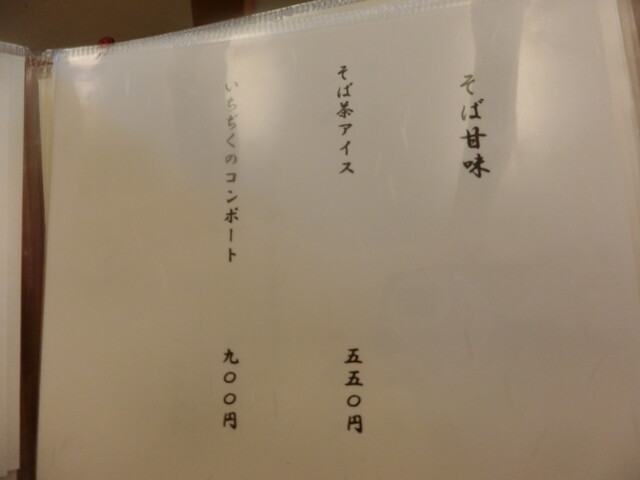 そば甘味
そば茶アイス 五五〇円
いちぢくのコンポート 九〇〇円